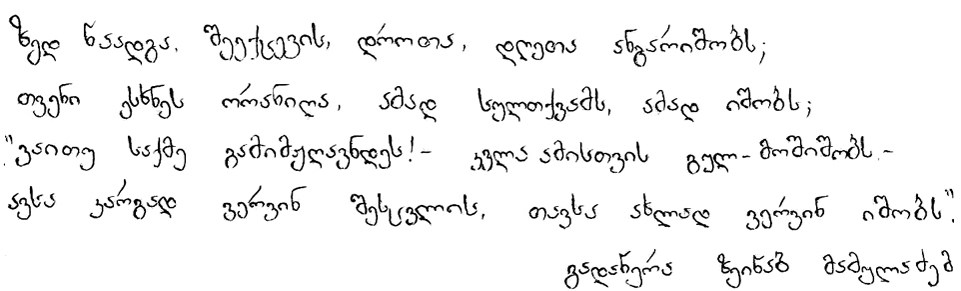 ზედ წაადგა, შეექცევის, დროთა, დღეთა ანგარიშობს;
თვენი ესხნეს ორანიღა, ამად სულთქვამს, ამად იშობს;
"ვაითუ საქმე გამიმჟღავნდეს!- კვლა ამისთვის გულ-მოშიშობს.-
ავსა კარგად ვერვინ შესცვლის, თავსა ახლად ვერვინ იშობს".
გადაწერა ზეინაბ მამულაძემ